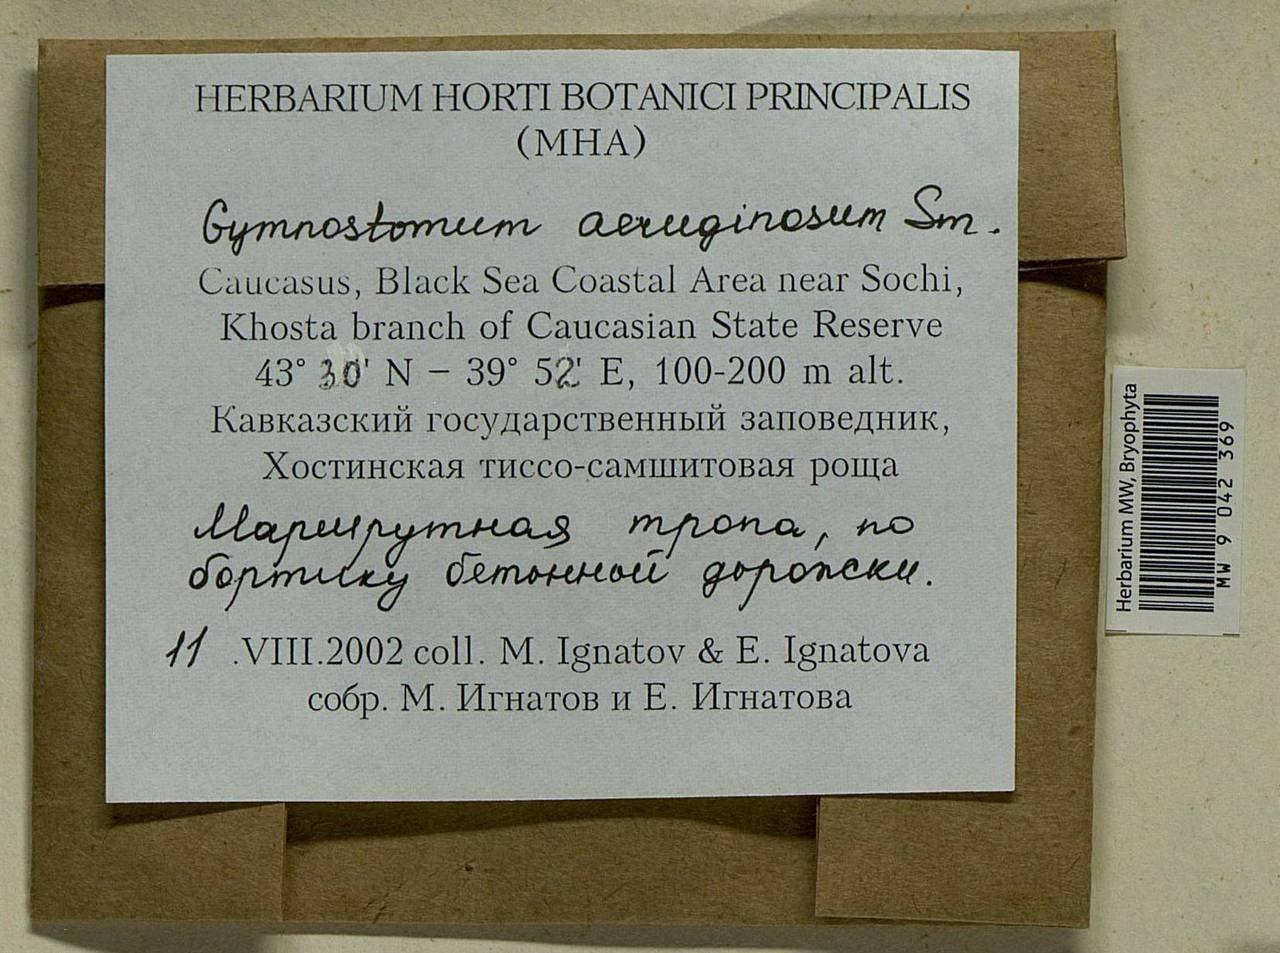 HERBARIUM HORTI BOTANICI PRINCIPALIS
(MHA)
Gymnostomum aeruginosum Sm.
Caucasus, Black Sea Coastal Area near Sochi,
Khosta branch of Caucasian State Reserve
43° 30' N – 39° 52' E, 100-200 m alt.
Кавказский государственный заповедник,
Хостинская тиссо-самшитовая роща
Маршрутная тропа, по
бортику бетонной дорожки.
11 .VIII.2002 coll. M. Ignatov & E. Ignatova
собр. М. Игнатов и Е. Игнатова
Herbarium MW, Bryophyta
MW 9 042 369